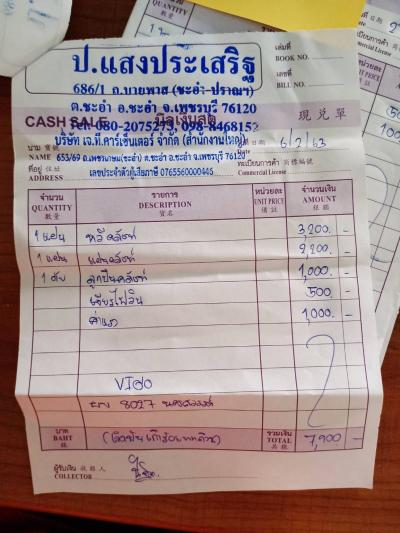 ป.แสงประเสริฐ
686/1 ถ.บายพาส (ชะอำ-ปราณฯ)
ต.ชะอำ อ.ชะอำ จ.เพชรบุรี 76120
Tel. 080-2075273, 098-8468152
เล่มที่
BOOK NO.
เลขที่
BILL NO.
CASH SALE บิลเงินสด 現兌單
บริษัท เจ.ที.คาร์เซ็นเตอร์ จำกัด (สำนักงานใหญ่)
นาม
NAME 653/69 ถ.เพชรเกษม(ชะอำ) ต.ชะอำ อ.ชะอำ จ.เพชรบุรี 76120
วันที่ 6/2/63
Date
ที่อยู่ 住址
ADDRESS
เลขประจำตัวผู้เสียภาษี 0765560000445
ทะเบียนการค้า 商標編號
Commercial License
จำนวน รายการ หน่วยละ จำนวนเงิน
QUANTITY DESCRIPTION UNIT PRICE AMOUNT
數量 貨名 備註 銀額
1 แผ่น หวีคลัทช์ 3,200.-
1 แผ่น แผ่นคลัทช์ 2,200.-
1 ตับ ลูกปืนคลัทช์ 1,000.-
เจียรไฟลวิล 500.-
ค่าแรง 1,000.-
VIGO
8027
บาท
BAHT
銖
รวมเงิน
TOTAL
共銀
7,900 -
(เจ็ดพันเก้าร้อยบาทถ้วน)
ผู้รับเงิน 收銀人
COLLECTOR